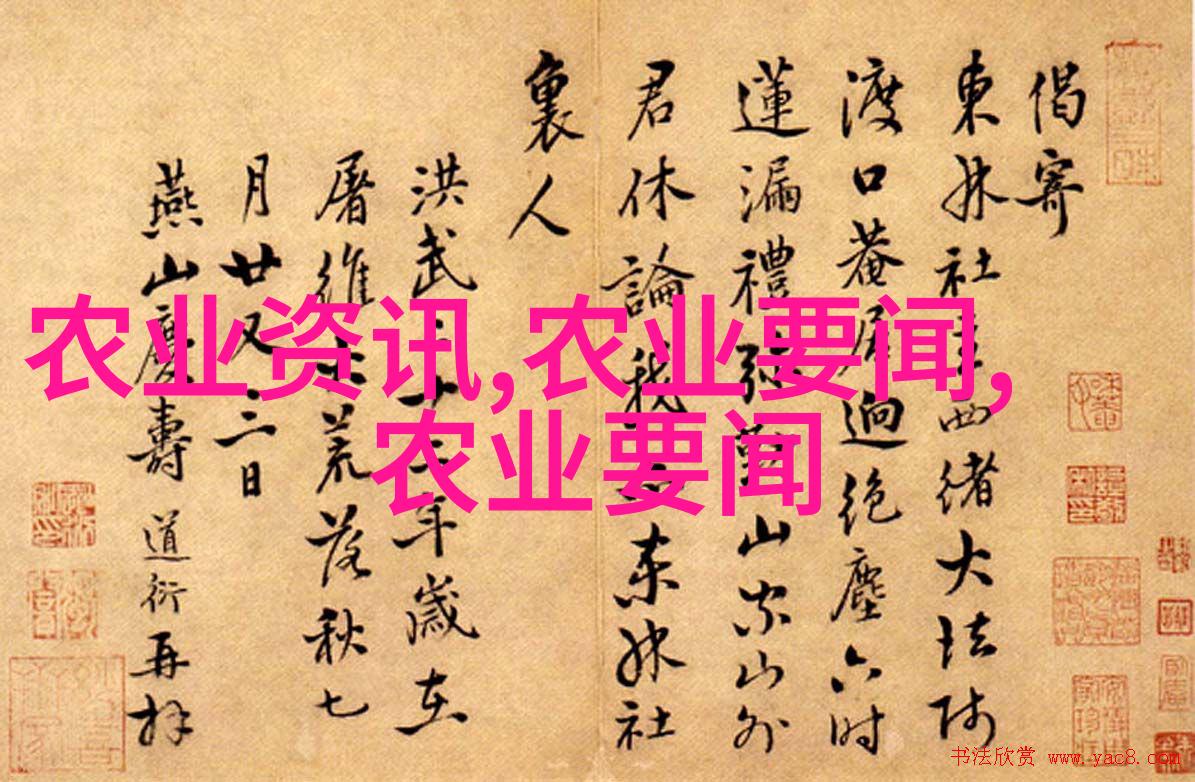 偈寄
東林社主西緒大法師
渡口菴居迥絶塵六時
蓮漏禮 山窓山外
君休論我 東林社
裏人
洪武二十二年歲在
屠維 荒落秋七
月廿又二日
燕山慶壽道衍再拜
农业资讯,农业要闻,
农业要闻
书法欣赏 www.yac8.com